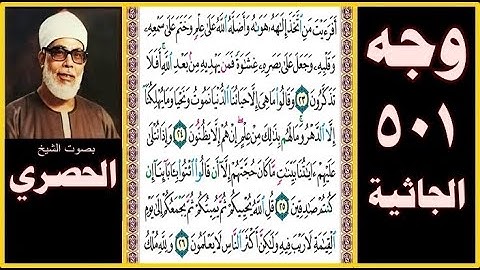 وجه
٥٠١
الجاثية
بصوت الشيخ
الحصري
أَفَرَءَيْتَ مَنِ ٱتَّخَذَ إِلَٰهَهُۥ هَوَىٰهُ وَأَضَلَّهُ ٱللَّهُ عَلَىٰ عِلْمٍ وَخَتَمَ عَلَىٰ سَمْعِهِۦ
وَقَلْبِهِۦ وَجَعَلَ عَلَىٰ بَصَرِهِۦ غِشَٰوَةً فَمَن يَهْدِيهِ مِنۢ بَعْدِ ٱللَّهِ أَفَلَا
تَذَكَّرُونَ ٢٣ وَقَالُوا۟ مَا هِىَ إِلَّا حَيَاتُنَا ٱلدُّنْيَا نَمُوتُ وَنَحْيَا وَمَا يُهْلِكُنَآ
إِلَّا ٱلدَّهْرُ وَمَا لَهُم بِذَٰلِكَ مِنْ عِلْمٍ إِنْ هُمْ إِلَّا يَظُنُّونَ ٢٤ وَإِذَا تُتْلَىٰ
عَلَيْهِمْ ءَايَٰتُنَا بَيِّنَٰتٍ مَّا كَانَ حُجَّتَهُمْ إِلَّآ أَن قَالُوا۟ ٱئْتُوا۟ بِـَٔابَآئِنَآ إِن
كُنتُمْ صَٰدِقِينَ ٢٥ قُلِ ٱللَّهُ يُحْيِيكُمْ ثُمَّ يُمِيتُكُمْ ثُمَّ يَجْمَعُكُمْ إِلَىٰ يَوْمِ
ٱلْقِيَٰمَةِ لَا رَيْبَ فِيهِ وَلَٰكِنَّ أَكْثَرَ ٱلنَّاسِ لَا يَعْلَمُونَ ٢٦ وَلِلَّهِ مُلْكُ